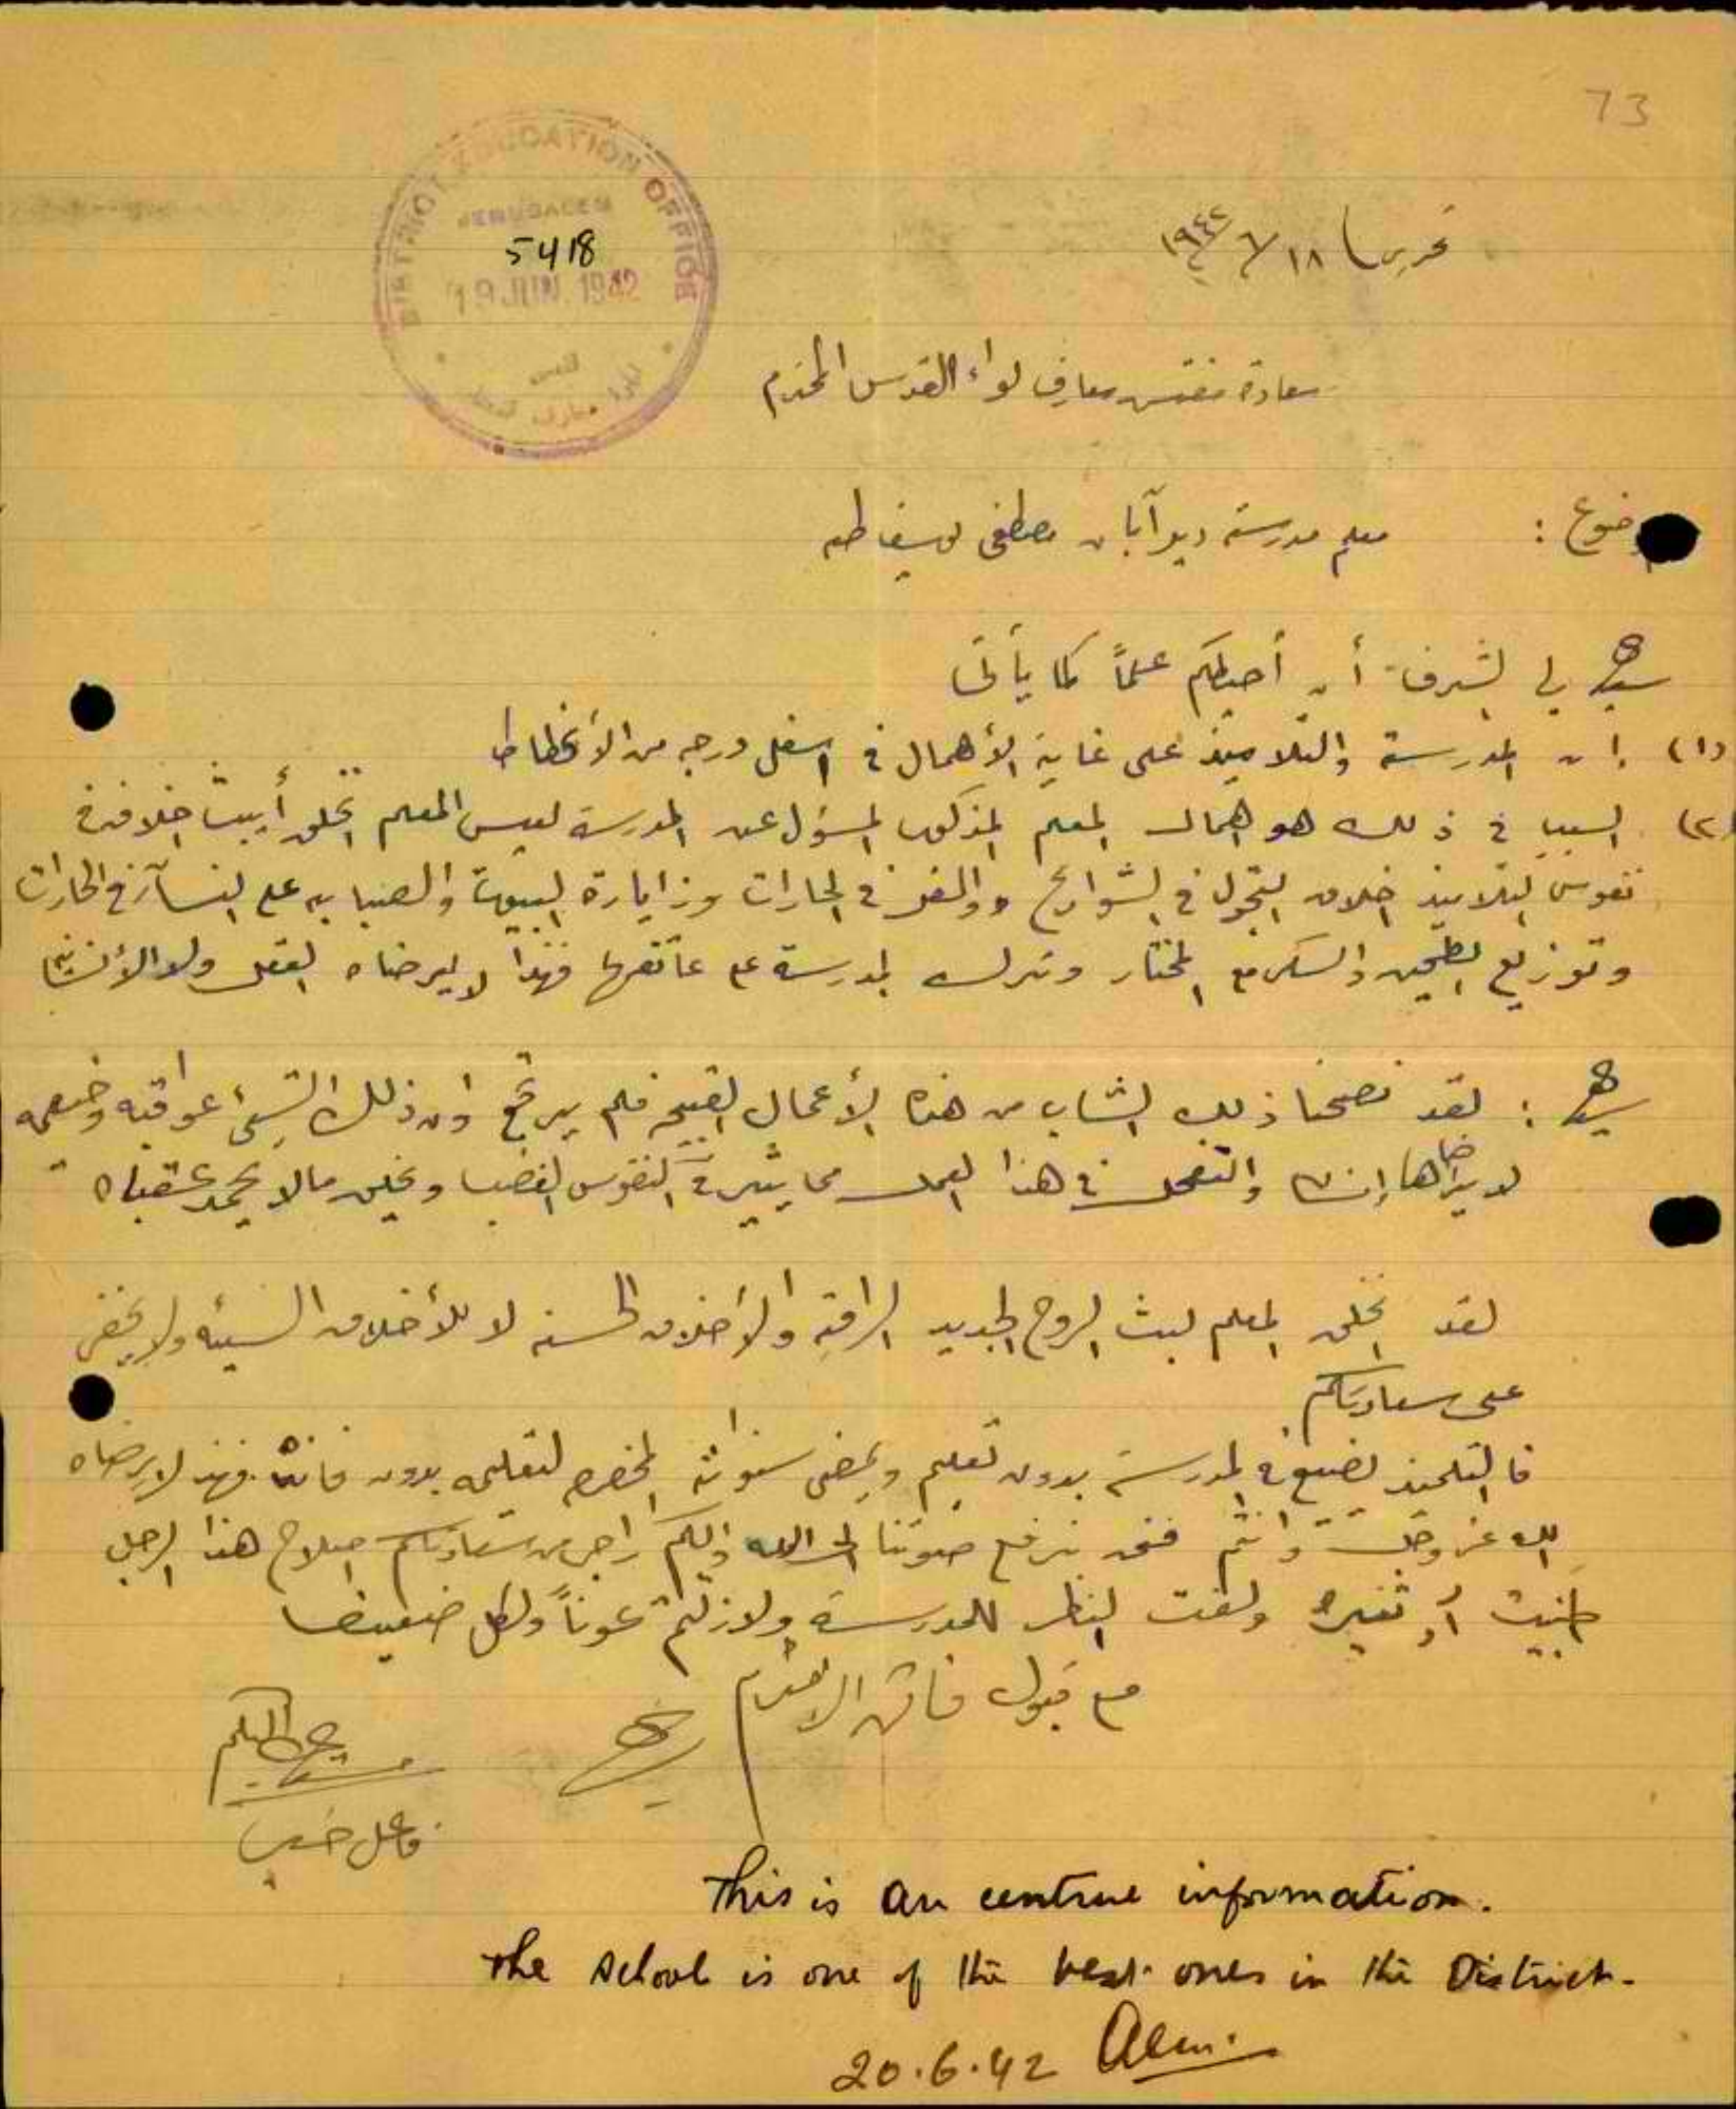 73
DISTRICT EDUCATION OFFICE
JERUSALEM
5418
19 JUN 1942
القدس
تحريرا ١٨/٦/١٩٤٢
سعادة مفتش معارف لواء القدس المحترم
موضوع : معلم مدرسة ديرآبان مصطفى يوسف طه
سيدي لي الشرف أن أحيطكم علماً كما يأتى
(١) ان المدرسة والتلاميذ على غاية الأهمال في اسفل درجه من الأنحطاط
(٢) السبب في ذلك هو اهمال المعلم المذكور المسؤل عن المدرسة ليس المعلم تخلق أن يبث اخلاقه في
نفوس التلاميذ اخلاق التجول في الشوارع و في الحارات وزايارة البيوت و على النسآء في الحارات
وتوزيع الطحين والسكر مع المختار وترك المدرسة على عاتقها فهذا لا يرضاه العقل ولا الأنسانيه
سيدي : لقد نصحنا ذلك الشاب من هذه الأعمال القبيحه فلم يرتجع وان ذلك السيئ عواقبه وخيمه
لا يرضاها إنسان في هذا العمل مما يثير في النفوس الغضب ويخلق مالا يحمد عقباه
لقد تخلق المعلم لبث الروح الجديد الراقيه والأخلاق الحسنه لا للأخلاق السيئه ولا يخفى
على سعادتكم
فالتلميذ يضيع في المدرسة بدون تعليم ويمضى سنواته لتعليمه بدون فائده فهذا لا يرضاه
الله عز وجل وأنتم فنحن نرفع صوتنا الى الله واليكم راجين من سعادتكم اصلاح هذا الرجل
أو تغييره ولفت النظر للمدرسة ولازلتم عوناً ولكل ضعيف
مع قبول فائق الاحترام
فاعل خير
This is an untrue information.
The school is one of the best ones in the District.
20.6.42